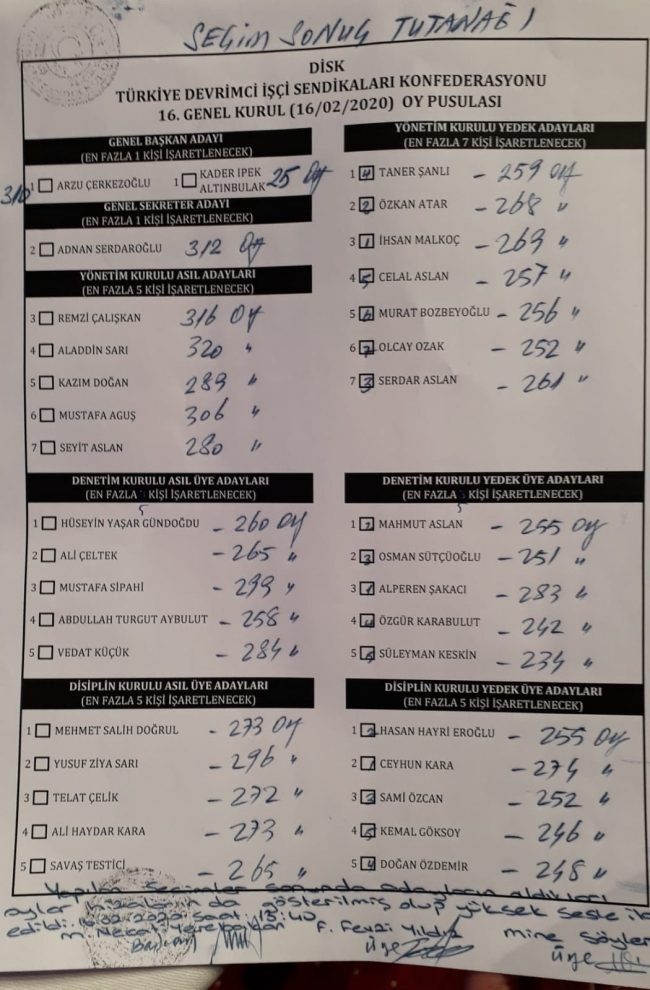 SEÇİM SONUÇ TUTANAĞI
DİSK
TÜRKİYE DEVRİMCİ İŞÇİ SENDİKALARI KONFEDERASYONU
16. GENEL KURUL (16/02/2020) OY PUSULASI
GENEL BAŞKAN ADAYI
(EN FAZLA 1 KİŞİ İŞARETLENECEK)
310 1 ARZU ÇERKEZOĞLU 1 KADER IPEK ALTINBULAK 25 OY
GENEL SEKRETER ADAYI
(EN FAZLA 1 KİŞİ İŞARETLENECEK)
2 ADNAN SERDAROĞLU 312 OY
YÖNETİM KURULU ASIL ADAYLARI
(EN FAZLA 5 KİŞİ İŞARETLENECEK)
3 REMZİ ÇALIŞKAN 316 OY
4 ALADDİN SARI 320 "
5 KAZIM DOĞAN 289 "
6 MUSTAFA AGUŞ 306 "
7 SEYİT ASLAN 280 "
YÖNETİM KURULU YEDEK ADAYLARI
(EN FAZLA 7 KİŞİ İŞARETLENECEK)
1 4 TANER ŞANLI - 259 OY
2 2 ÖZKAN ATAR - 268 "
3 1 İHSAN MALKOÇ - 269 "
4 5 CELAL ASLAN - 257 "
5 6 MURAT BOZBEYOĞLU - 256 "
6 7 OLCAY OZAK - 252 "
7 3 SERDAR ASLAN - 261 "
DENETİM KURULU ASIL ÜYE ADAYLARI
(EN FAZLA 5 KİŞİ İŞARETLENECEK)
1 HÜSEYİN YAŞAR GÜNDOĞDU - 260 OY
2 ALİ ÇELTEK - 265 "
3 MUSTAFA SİPAHİ - 299 "
4 ABDULLAH TURGUT AYBULUT - 258 "
5 VEDAT KÜÇÜK - 284 "
DENETİM KURULU YEDEK ÜYE ADAYLARI
(EN FAZLA 5 KİŞİ İŞARETLENECEK)
1 2 MAHMUT ASLAN - 255 OY
2 3 OSMAN SÜTÇÜOĞLU - 251 "
3 1 ALPEREN ŞAKACI - 283 "
4 4 ÖZGÜR KARABULUT - 242 "
5 5 SÜLEYMAN KESKİN - 234 "
DİSİPLİN KURULU ASIL ÜYE ADAYLARI
(EN FAZLA 5 KİŞİ İŞARETLENECEK)
1 MEHMET SALİH DOĞRUL - 273 OY
2 YUSUF ZİYA SARI - 296 "
3 TELAT ÇELİK - 272 "
4 ALİ HAYDAR KARA - 273 "
5 SAVAŞ TESTİCİ - 265 "
DİSİPLİN KURULU YEDEK ÜYE ADAYLARI
(EN FAZLA 5 KİŞİ İŞARETLENECEK)
1 2 HASAN HAYRİ EROĞLU - 255 OY
2 1 CEYHUN KARA - 274 "
3 3 SAMİ ÖZCAN - 252 "
4 5 KEMAL GÖKSOY - 246 "
5 4 DOĞAN ÖZDEMİR - 248 "
Yapılan seçimler sonunda adayların aldıkları
oylar hizalarında gösterilmiş olup yüksek sesle
edildi. 16.02.2020 saat 13:40
M. Necati F. Fevzi Yıldız Mine
Başkan Üye Üye